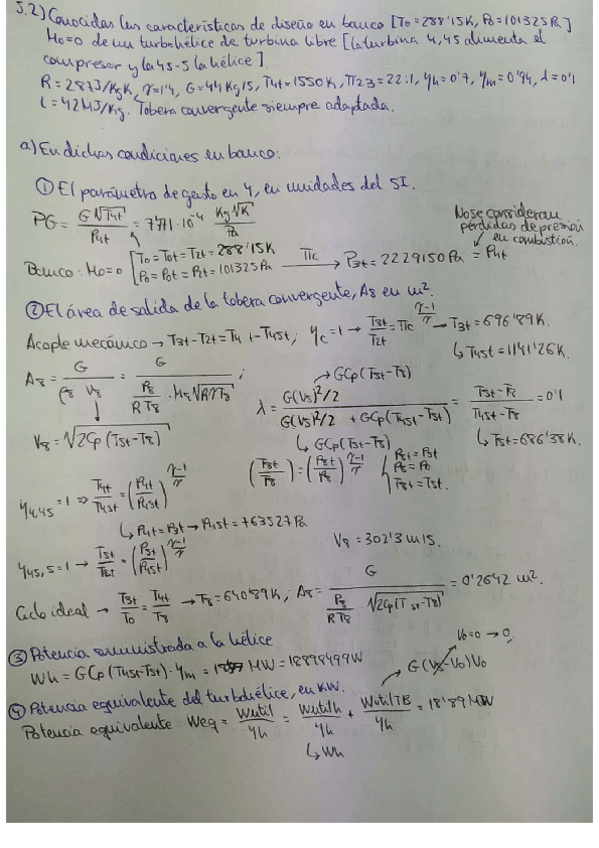 5.2) Conocidas las características de diseño en banco [T0=288'15K, P0=101325Pa]
M0=0 de un turbohélice de turbina libre [la turbina 4,45 alimenta el
compresor y la 45-5 la hélice].
R=287J/kgK, γ=1'4, G=44Kg/s, T4t=1550K, π23=22:1, ηh=0'7, ηm=0'94, λ=0'1
L=42MJ/Kg. Tobera convergente siempre adaptada.
a) En dichas condiciones en banco:
① El parámetro de gasto en 4, en unidades del SI.
PG = G√T4t / P4t = 7'771·10^-4 Kg√K / Pa
No se consideran pérdidas de presión en combustión.
Banco: M0=0 [T0=T0t=T2t=288'15K P0=P0t=P2t=101325Pa → πc P3t=2229150Pa = P4t
② El área de salida de la tobera convergente, A8 en m².
Acople mecánico → T3t-T2t=T4t-T45t; ηc=1 → T3t/T2t = πc^(γ-1/γ) → T3t=696'89K.
↳ T45t=1141'26K.
A8 = G / ρ8 V8 = G / (P8/RT8 · M8√γRT8);
→ GCp(T5t-T8)
λ = G(V8)²/2 / (G(V8)²/2 + GCp(T45t-T5t)) = (T5t-T8)/(T45t-T8) = 0'1
↳ GCp(T5t-T8)
↳ T5t=686'38K.
V8=√2Cp(T5t-T8)
(T8t/T8) = (P8t/P8)^(γ-1/γ) P8t=P5t P8=P0 T8t=T5t.
η4,45=1 ⇒ T4t/T45t = (P4t/P45t)^(γ-1/γ)
↳ P4t=P3t → P45t=763527Pa
V8=302'3 m/s.
η45,5=1 → T5t/T45t = (P5t/P45t)^(γ-1/γ)
Ciclo ideal → T3t/T0 = T4t/T8 → T8=640'89K, A8 = G / (P8/RT8 · √2Cp(T5t-T8)) = 0'2642 m².
③ Potencia suministrada a la hélice
V0=0 → 0
Wh = GCp(T45t-T5t)·ηm = MW = 18898499W
G(V8-V0)V0
④ Potencia equivalente del turbohélice, en KW.
Potencia equivalente: Weq = Wutil/ηh = Wutilh/ηh + WutilTB/ηh = 18'89 MW
↳ Wh